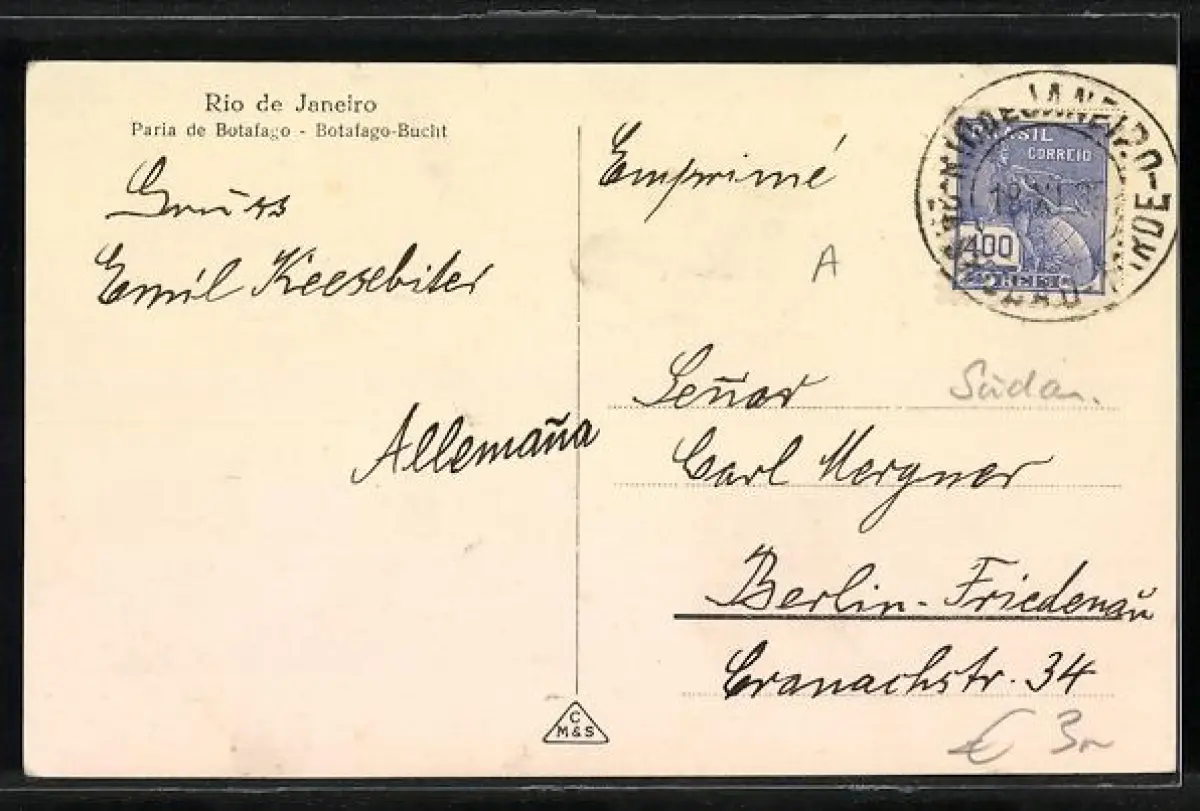 Rio de Janeiro
Paria de Botafago - Botafago-Bucht
Gruss
Emil Keesebiter
Allemaña
Emprimé
A
BRASIL
CORREIO
400
Señor
Südam.
Carl Mergner
Berlin-Friedenau
Cranachstr. 34
€ 3,-
C
M&S